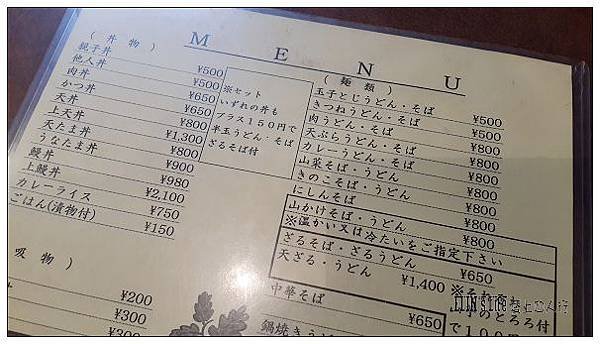 M E N U
(丼 物)
親子丼 ¥500
他人丼 ¥500
肉丼 ¥650
かつ丼 ¥650
天丼 ¥800
上天丼 ¥1,300
天たま丼 ¥800
うなたま丼 ¥900
鰻丼 ¥980
上鰻丼 ¥2,100
カレーライス ¥750
ごはん(漬物付) ¥150
※セット
いずれの丼も
プラス150円で
半玉うどん・そば
ざるそば付
(麺 類)
玉子とじうどん・そば ¥500
きつねうどん・そば ¥500
肉うどん・そば ¥800
天ぷらうどん・そば ¥800
カレーうどん・そば ¥800
山菜そば・うどん ¥800
きのこそば・うどん ¥800
にしんそば ¥800
山かけそば・うどん ¥800
※温かい又は冷たいをご指定下さい
ざるそば・ざるうどん ¥650
天ざる・うどん ¥1,400
中華そば ¥650
鍋焼きう
のとろろ付
で100
吸 物)
¥200
¥300
¥300